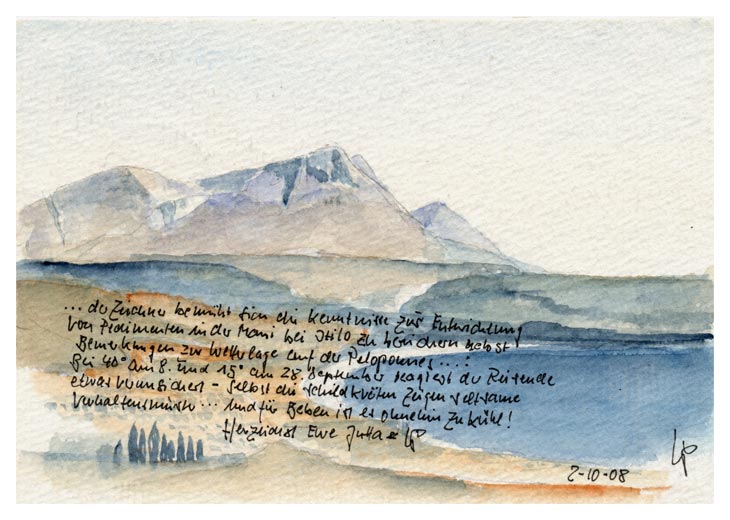 ... der Zeichner bemüht sich die Kenntnisse zur Entwicklung
von Pedimenten in der Mani bei Itilo zu nebst
Bemerkungen zur Wetterlage auf der Peloponnes ....:
Bei 40° am 8. und 15° am 28. September reagiert der Reisende
etwas verunsichert - selbst die Schildkröten zeigen seltsame
Verhaltensmuster... und für Beben ist es ohnehin zu kühl!
Herzlichst Eure Jutta &
2-10-08